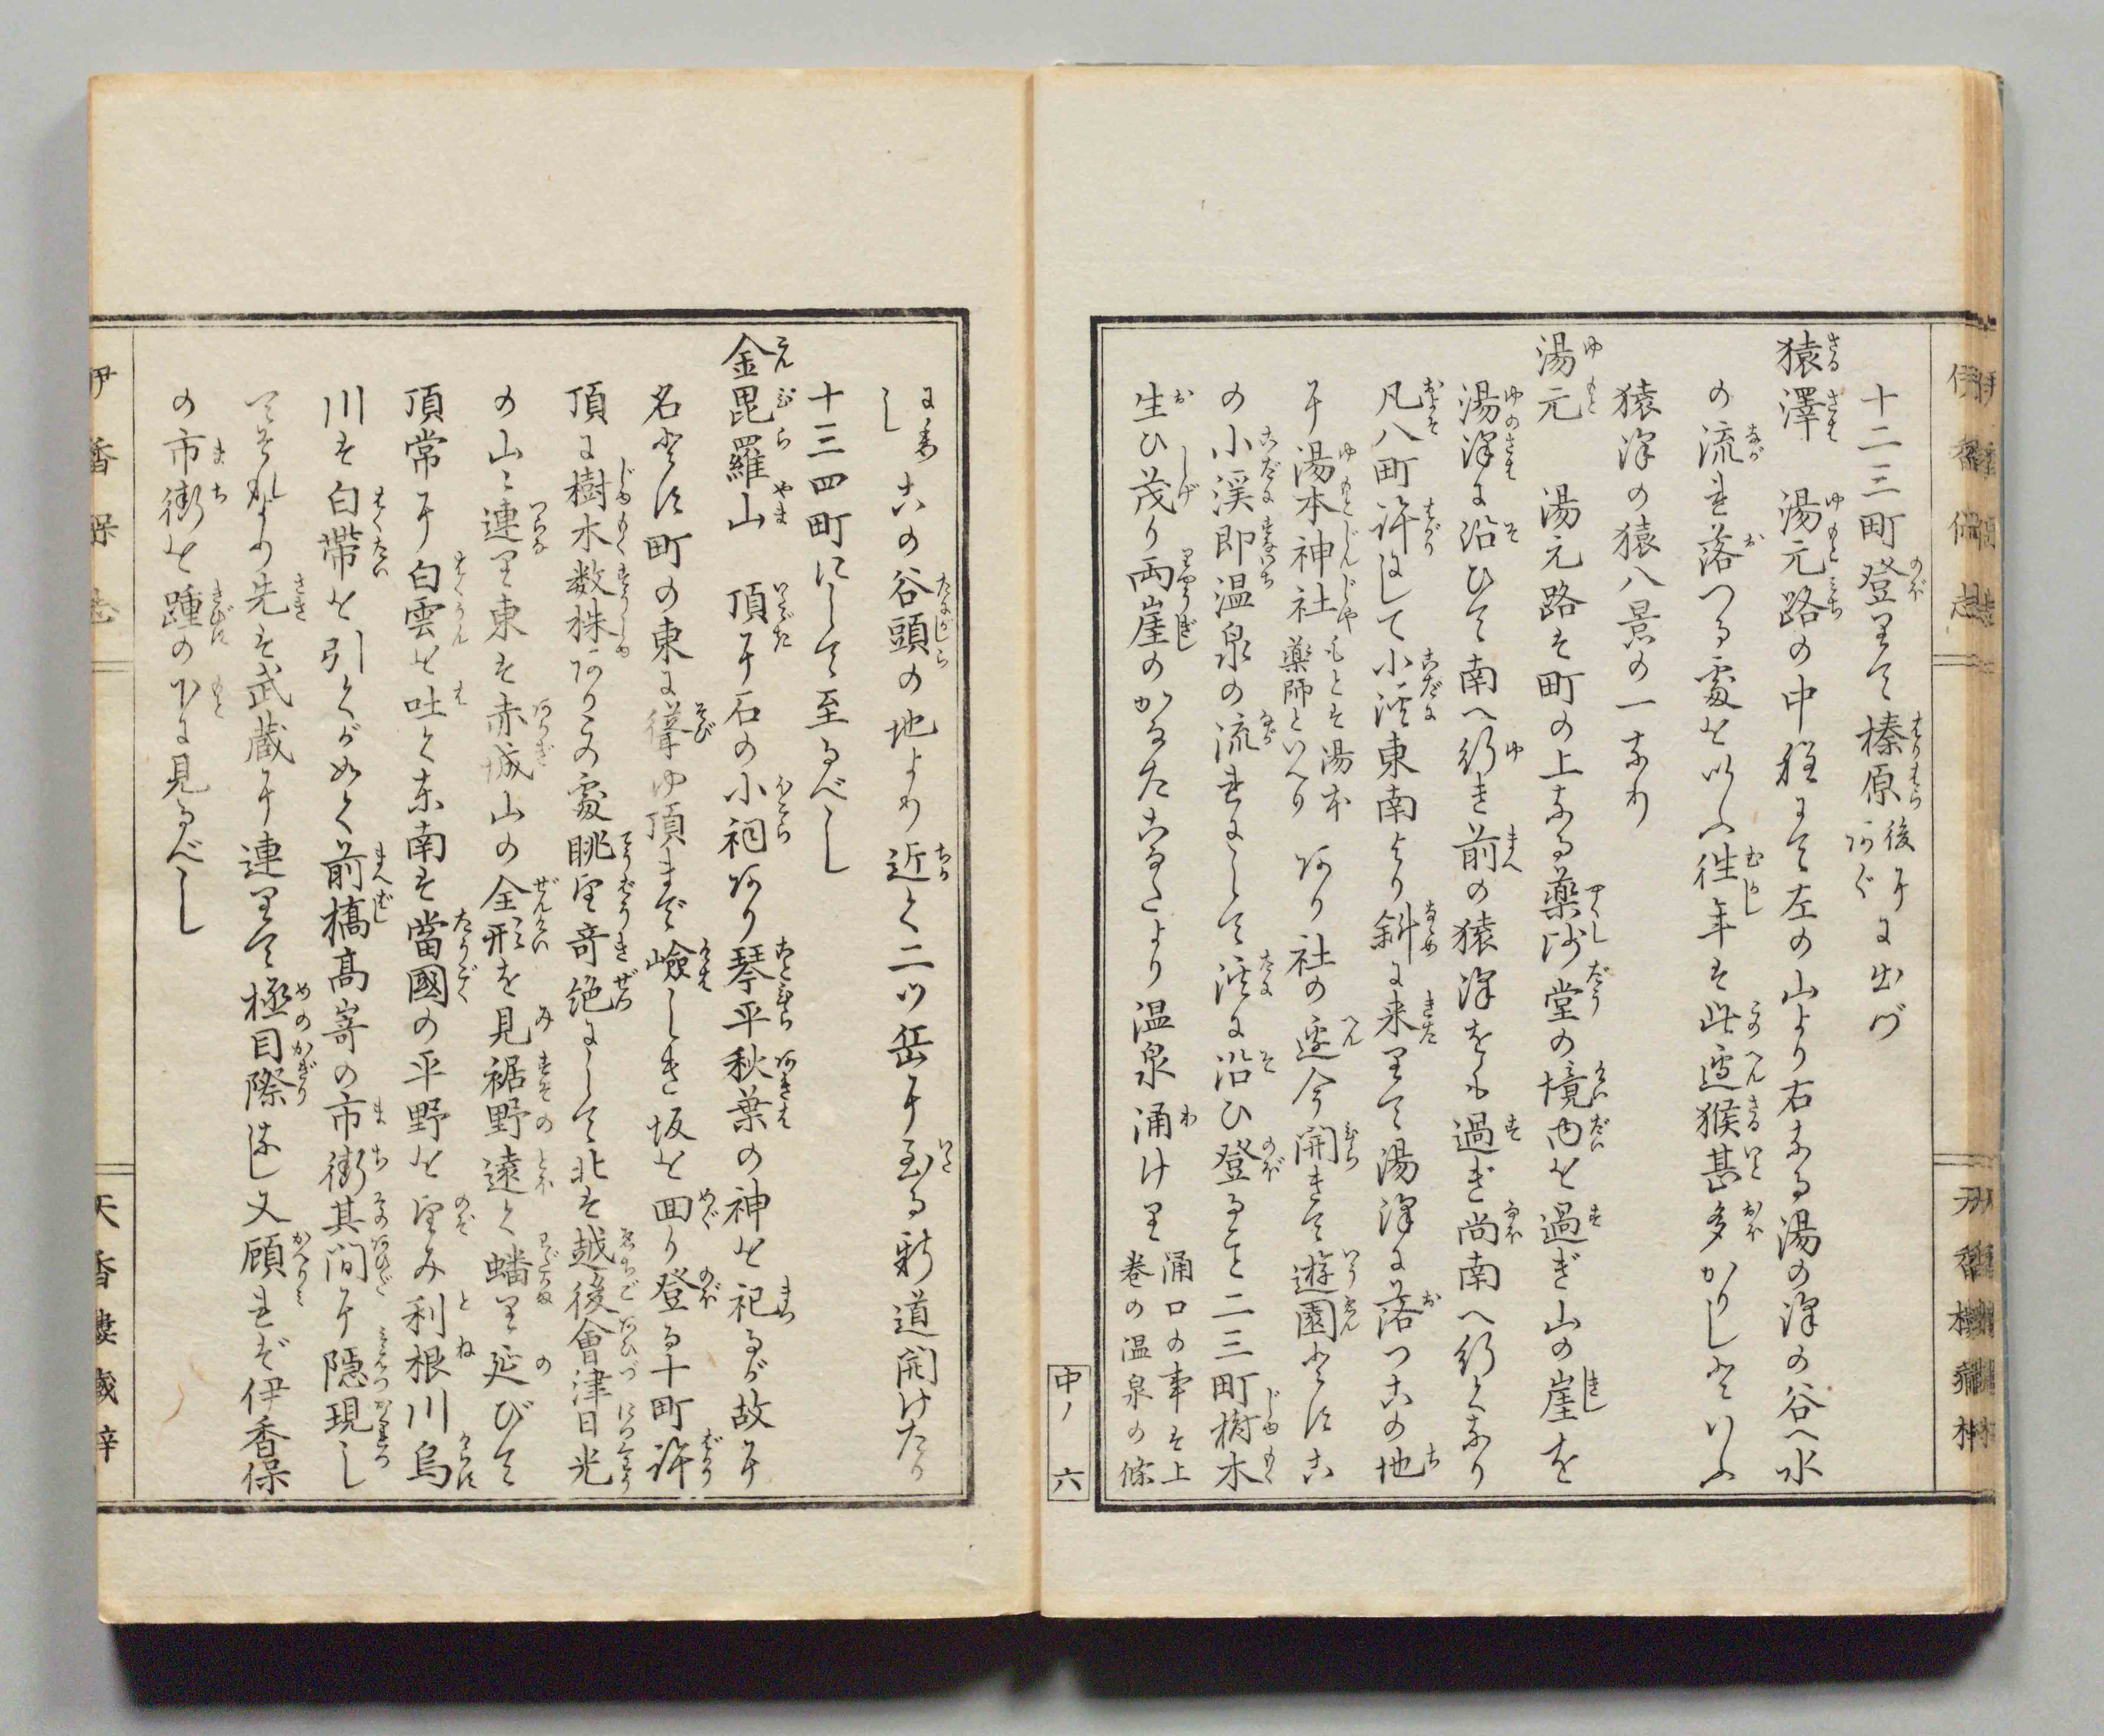 十二三町登りて榛原後に出づ
猿澤　湯元路の中程にて左の山より右なる湯の澤の谷へ水
の流れ落つる處をいふ往年は此邊猴甚多かりしといふ
猿澤の猿八景の一なり
湯元　湯元路は町の上なる藥師堂の境内を過ぎ山の崖を
湯澤に沿ひて南へ行き前の猿澤をも過ぎ尚南へ行くなり
凡八町許にして小溪東南より斜に来りて湯澤に落つこの地
に湯本神社もとは湯本藥師といへりあり社の邊今開きて遊園とすこ
の小溪即温泉の流れにして溪に沿ひ登ること二三町樹木
生ひ茂り両崖のかなたこなたより温泉涌けり涌口の事は上巻の温泉の條
にあり
この谷頭の地より近く二ツ岳に至る新道開けたり
十三四町にして至るべし
金毘羅山　頂に石の小祠あり琴平秋葉の神を祀るが故に
名とす町の東に聳ゆ頂まで嶮しき坂を囬り登る十町許
頂に樹木数株あり此處眺望奇絶にして北は越後會津日光
の山々連り東は赤城山の全形を見裾野遠く蟠り延びて
頂常に白雲を吐く東南は當國の平野を望み利根川烏
川は白帶を引くが如く前橋高嵜の市街其間に隠現し
それより先は武蔵に連りて極目際なし又顧れば伊香保
の市街を踵の下に見るべし
中ノ六
伊香保志
天香樓蔵梓